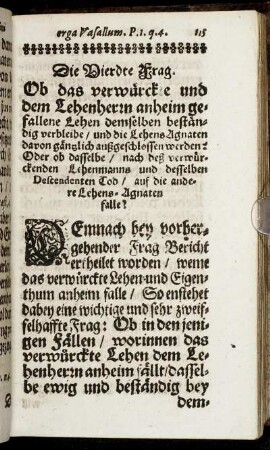 erga Vasallum. P. 1. q. 4. 115
Die Vierdte Frag.
Ob das verwürckte und
dem Lehenherrn anheim ge-
fallene Lehen demselben bestän-
dig verbleibe / und die Lehens Agnaten
davon gäntzlich außgeschlossen werden?
Oder ob dasselbe / nach deß verwür-
ckenden Lehenmanns und desselben
Descendenten Tod / auf die ande-
re Lehens-Agnaten
falle?
DEmnach bey vorher-
gehender Frag Bericht
ertheilet worden / weme
das verwürckte Lehen und Eigen-
thum anheim falle / So enstehet
dabey eine wichtige und sehr zweif-
felhaffte Frag: Ob in den jeni-
gen Fällen / worinnen das
verwürckte Lehen dem Le-
henherrn anheim fällt / dassel-
be ewig und beständig bey
dem-